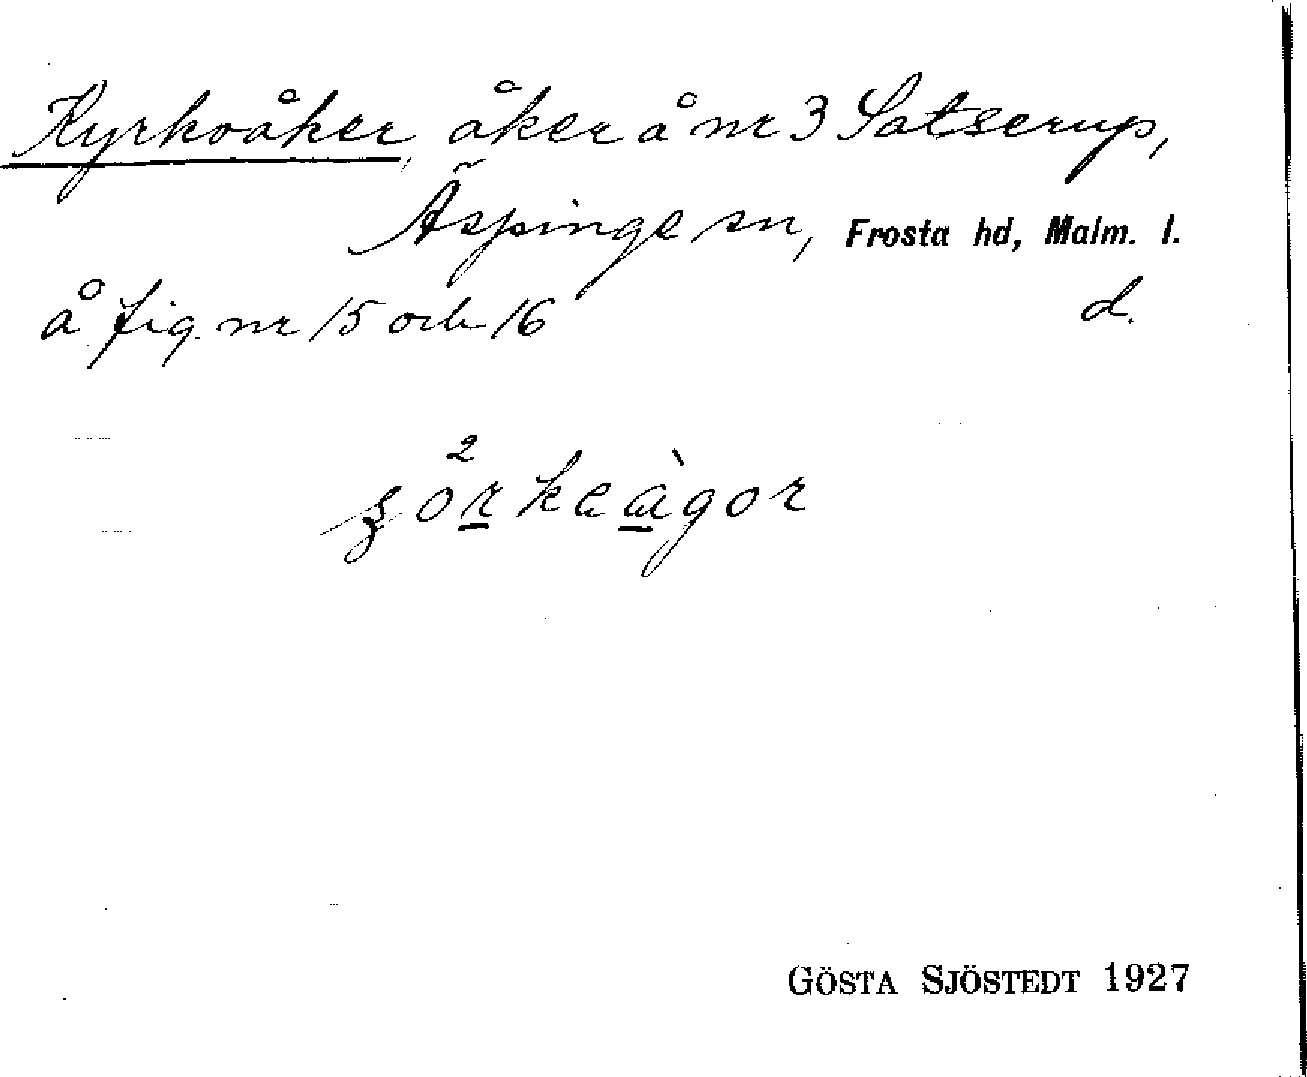 Kyrkoåker, åker å nr 3 Satserup,
Äspinge sn, Frosta hd, Malm. l.
å fig. nr 15 och 16 d.
GÖSTA SJÖSTEDT 1927